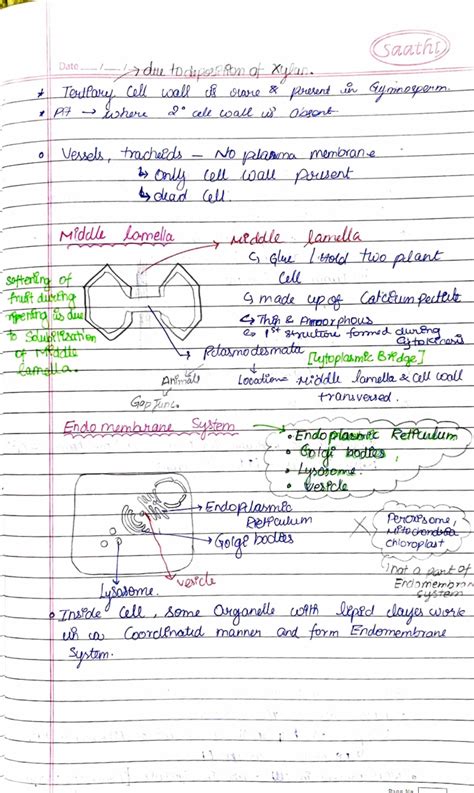 Saathi
Date ___/___/___
→ due to deposition of Xylan.
* Tertiary Cell wall is rare & present in Gymnosperm.
* Pit → where 2° cell wall is absent
o Vessels, tracheids – No plasma membrane
↳ only cell wall present
↳ dead cell.
Middle lamella
→ Middle lamella
↳ Glue / Hold two plant
cell
↳ made up of Calcium pectate
↳ Thin & Amorphous
↳ 1st structure formed during
Cytokinesis
softening of
fruit during
ripening is due
to Solubilisation
of Middle
lamella.
→ Plasmodesmata [Cytoplasmic Bridge]
Animals
Gap Junc.
↳ Location : Middle lamella & cell wall
transversed.
Endomembrane System
• Endoplasmic Reticulum
• Golgi bodies
• Lysosome
• vesicle
→ Endoplasmic
Reticulum
→ Golgi bodies
vesicle
Lysosome.
X
Peroxisome,
Mitochondria
chloroplast
not a part of
Endomembran
system
o Inside Cell, some Organelle with lipid layer work
in a Coordinated manner and form Endomembrane
System.
Page No.